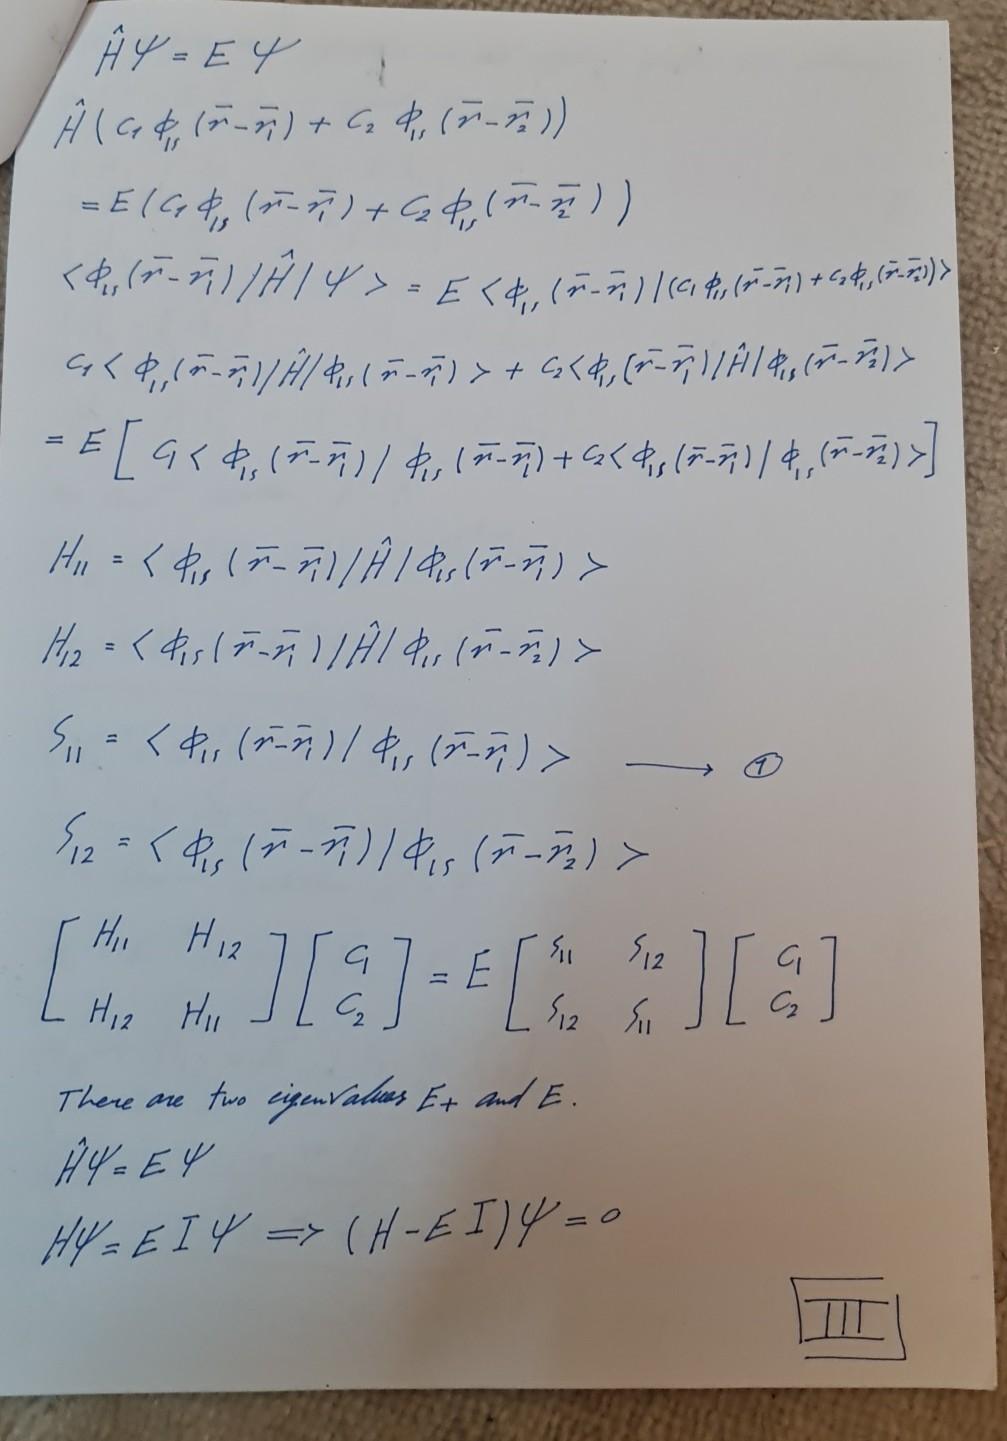 Ĥψ = Eψ
Ĥ(C₁ ϕ₁ₛ(r̄-r̄₁) + C₂ ϕ₁ₛ(r̄-r̄₂))
= E(C₁ ϕ₁ₛ(r̄-r̄₁) + C₂ ϕ₁ₛ(r̄-r̄₂))
<ϕ₁ₛ(r̄-r̄₁)/Ĥ/ψ> = E<ϕ₁ₛ(r̄-r̄₁)|(C₁ϕ₁ₛ(r̄-r̄₁)+C₂ϕ₁ₛ(r̄-r̄₂))>
C₁<ϕ₁ₛ(r̄-r̄₁)/Ĥ/ϕ₁ₛ(r̄-r̄₁)> + C₂<ϕ₁ₛ(r̄-r̄₁)/Ĥ/ϕ₁ₛ(r̄-r̄₂)>
= E[C₁<ϕ₁ₛ(r̄-r̄₁)/ϕ₁ₛ(r̄-r̄₁)+C₂<ϕ₁ₛ(r̄-r̄₁)/ϕ₁ₛ(r̄-r̄₂)>]
H₁₁ = <ϕ₁ₛ(r̄-r̄₁)/Ĥ/ϕ₁ₛ(r̄-r̄₁)>
H₁₂ = <ϕ₁ₛ(r̄-r̄₁)/Ĥ/ϕ₁ₛ(r̄-r̄₂)>
S₁₁ = <ϕ₁ₛ(r̄-r̄₁)/ϕ₁ₛ(r̄-r̄₁)> ⟶ ①
S₁₂ = <ϕ₁ₛ(r̄-r̄₁)/ϕ₁ₛ(r̄-r̄₂)>
[H₁₁ H₁₂] [C₁] = E [S₁₁ S₁₂] [C₁]
[H₁₂ H₁₁] [C₂] [S₁₂ S₁₁] [C₂]
There are two eigenvalues E+ and E.
Ĥψ = Eψ
Hψ = E I ψ ⟹ (H-E I)ψ = 0
III